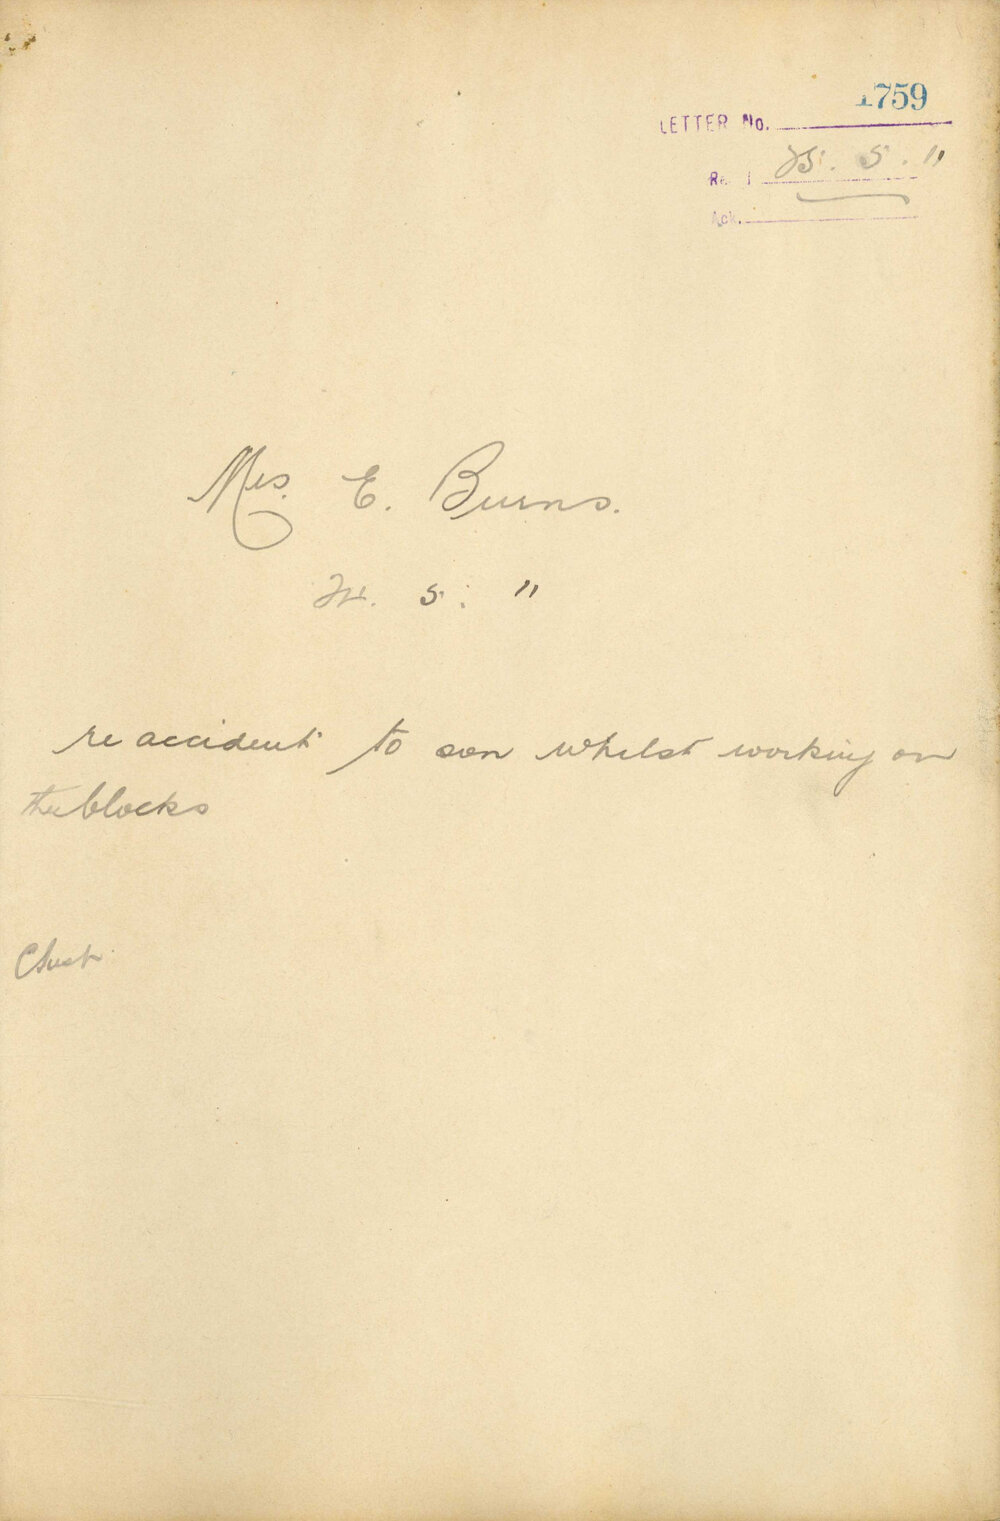 1759
LETTER No.
Rec'd 25. 5. 11
Ack.
Mrs. E. Burns.
24. 5. 11
re accident to son whilst working on
the blocks